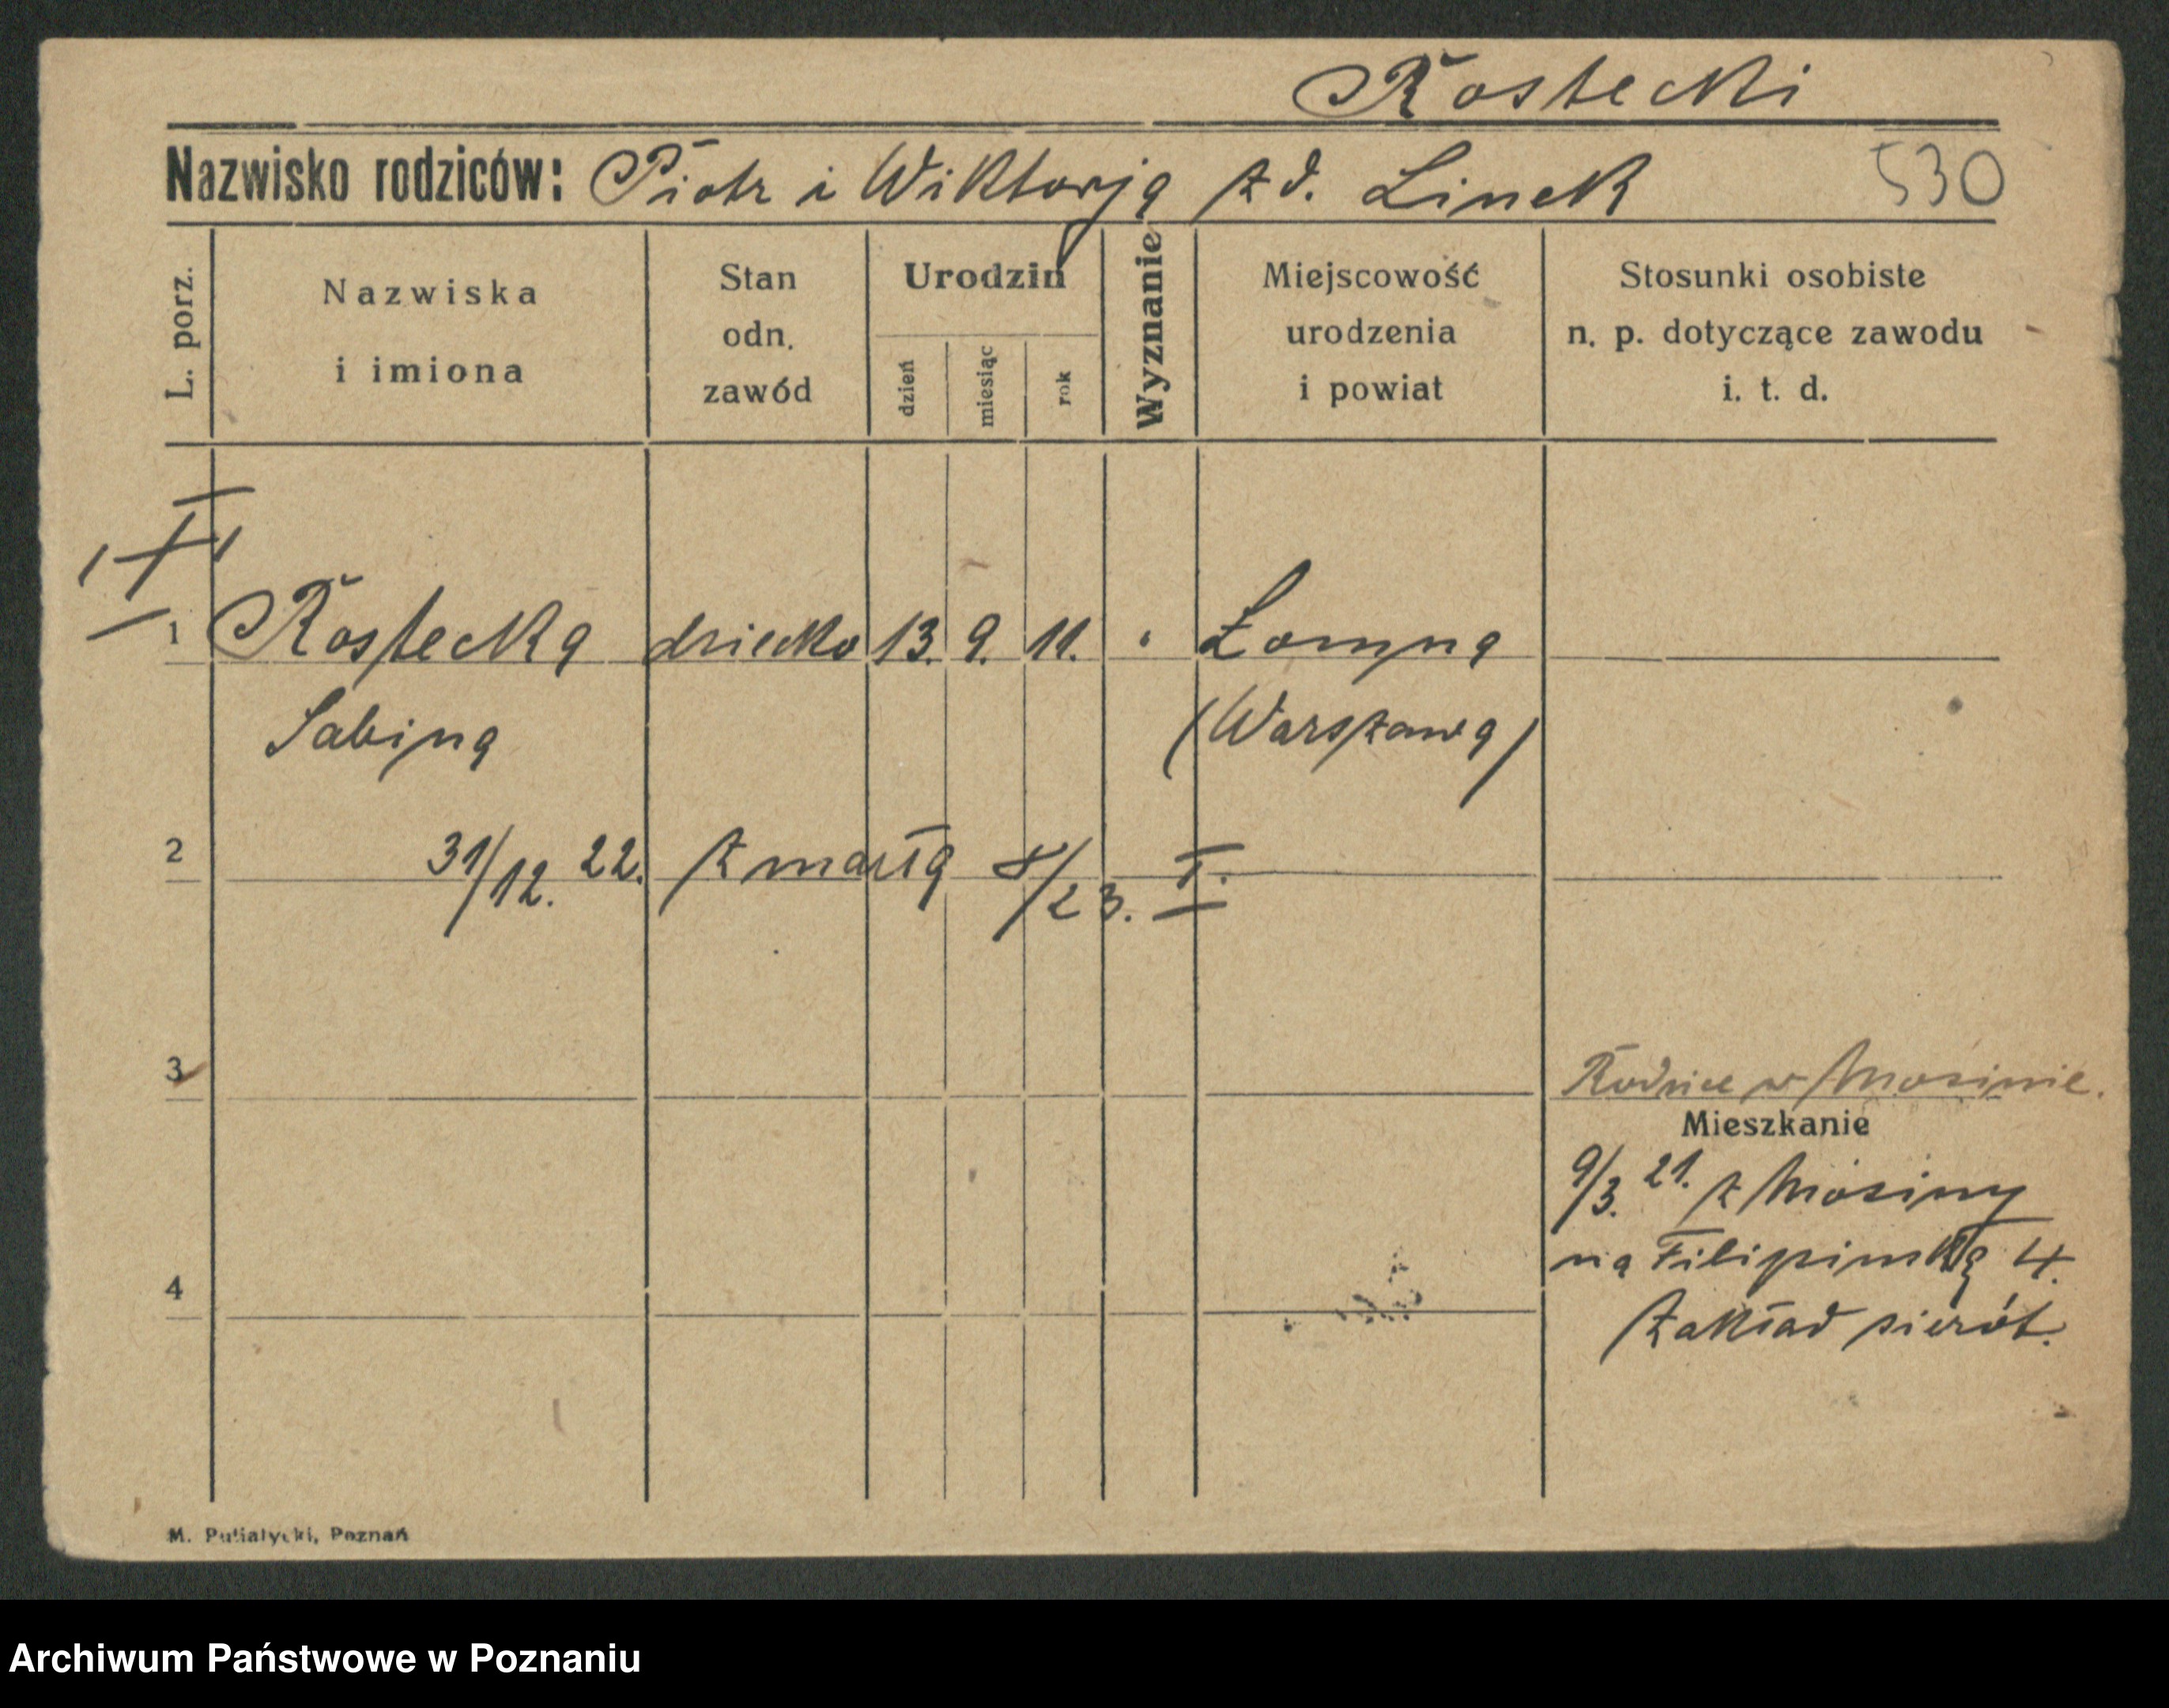 Rostecki
Nazwisko rodziców: Piotr i Wiktorja zd. Linek 530
L. porz.
Nazwiska
i imiona
Stan
odn.
zawód
Urodzin
dzień
miesiąc
rok
Wyznanie
Miejscowość
urodzenia
i powiat
Stosunki osobiste
n. p. dotyczące zawodu
i. t. d.
1 Rostecka dziecko 13. 9. 11. Łomna
Sabina (Warszawa)
2 31/12. 22. zmarła 8/23. I.
3 Rodzice w Mosinie.
Mieszkanie
9/3. 21. z Mosiny
na Filipińską 4.
4 Zakład sierót.
M. Putiatycki, Poznań
Archiwum Państwowe w Poznaniu